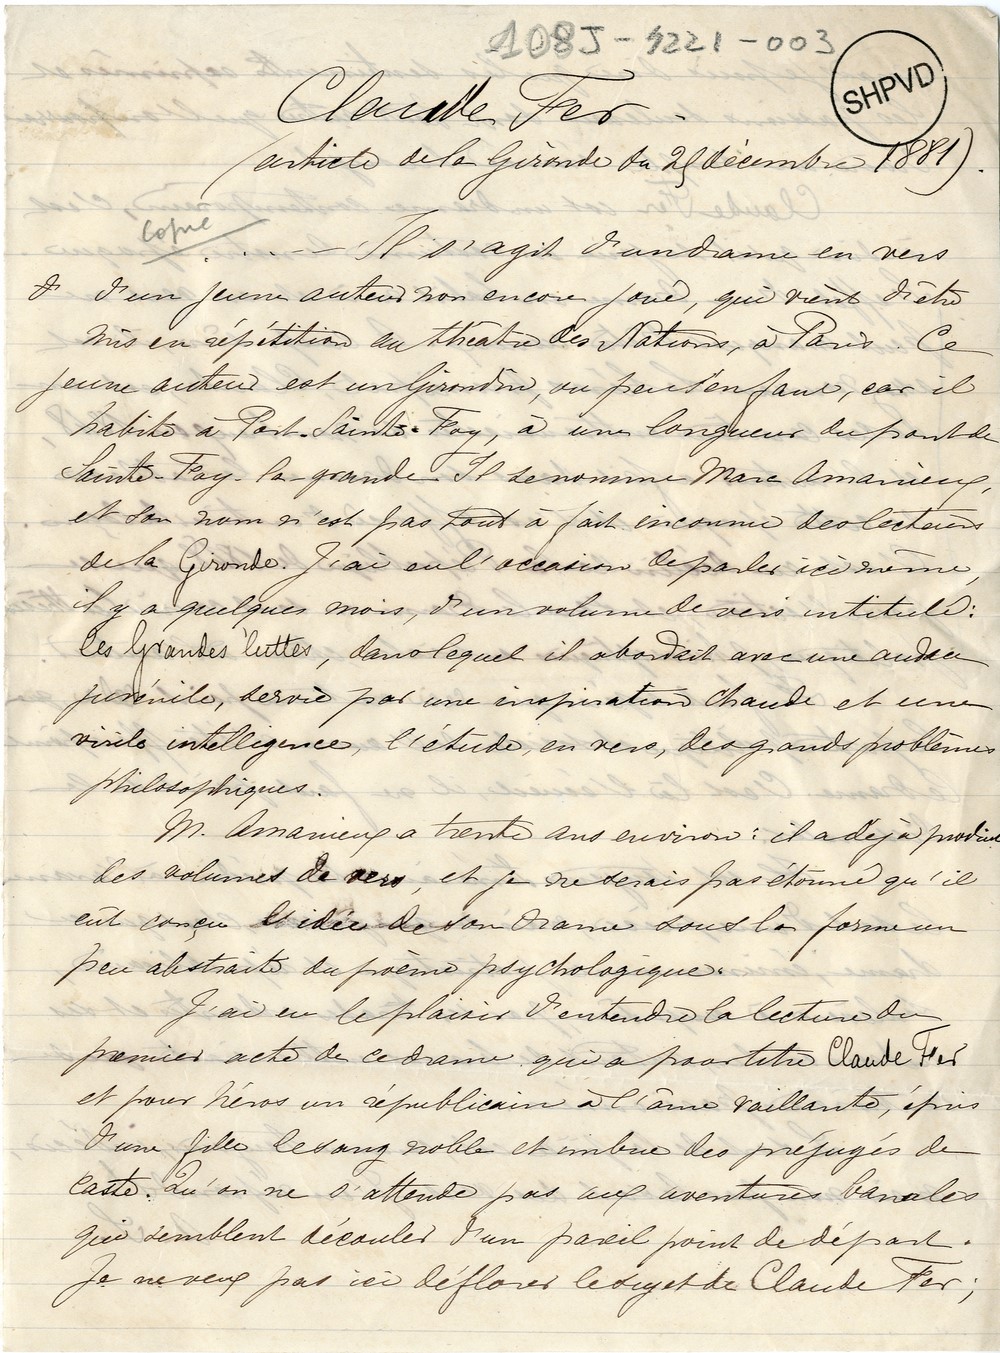 108J-9221-003
SHPVD
Claude Fer.
(article de la Gironde du 25 décembre 1881).
Copie
. . . . — Il s'agit d'un drame en vers
d d'un jeune auteur non encore joué, qui vient d'être
mis en répétition au théâtre des Nations, à Paris. Ce
jeune auteur est un Girondin, ou peu s'en faut, car il
habite à Port-Sainte-Foy, à une longueur du pont de
Sainte-Foy-la-grande. Il se nomme Marc Amanieux,
et son nom n'est pas tout à fait inconnu des lecteurs
de la Gironde. J'ai eu l'occasion de parler ici même,
il y a quelques mois, d'un volume de vers intitulé:
les Grandes luttes, dans lequel il abordait avec une audace
juvénile, servie par une inspiration chaude et une
virile intelligence, l'étude, en vers, des grands problèmes
philosophiques.
M. Amanieux a trente ans environ: il a déjà produit
des volumes de vers, et je ne serais pas étonné qu'il
eût conçu l'idée de son drame sous la forme un
peu abstraite du poème psychologique.
J'ai eu le plaisir d'entendre la lecture du
premier acte de ce drame qui a pour titre Claude Fer
et pour héros un républicain à l'âme vaillante, épris
d'une fille de sang noble et imbue des préjugés de
caste. Qu'on ne s'attende pas aux aventures banales
qui semblent découler d'un pareil point de départ.
Je ne veux pas ici déflorer le sujet de Claude Fer;